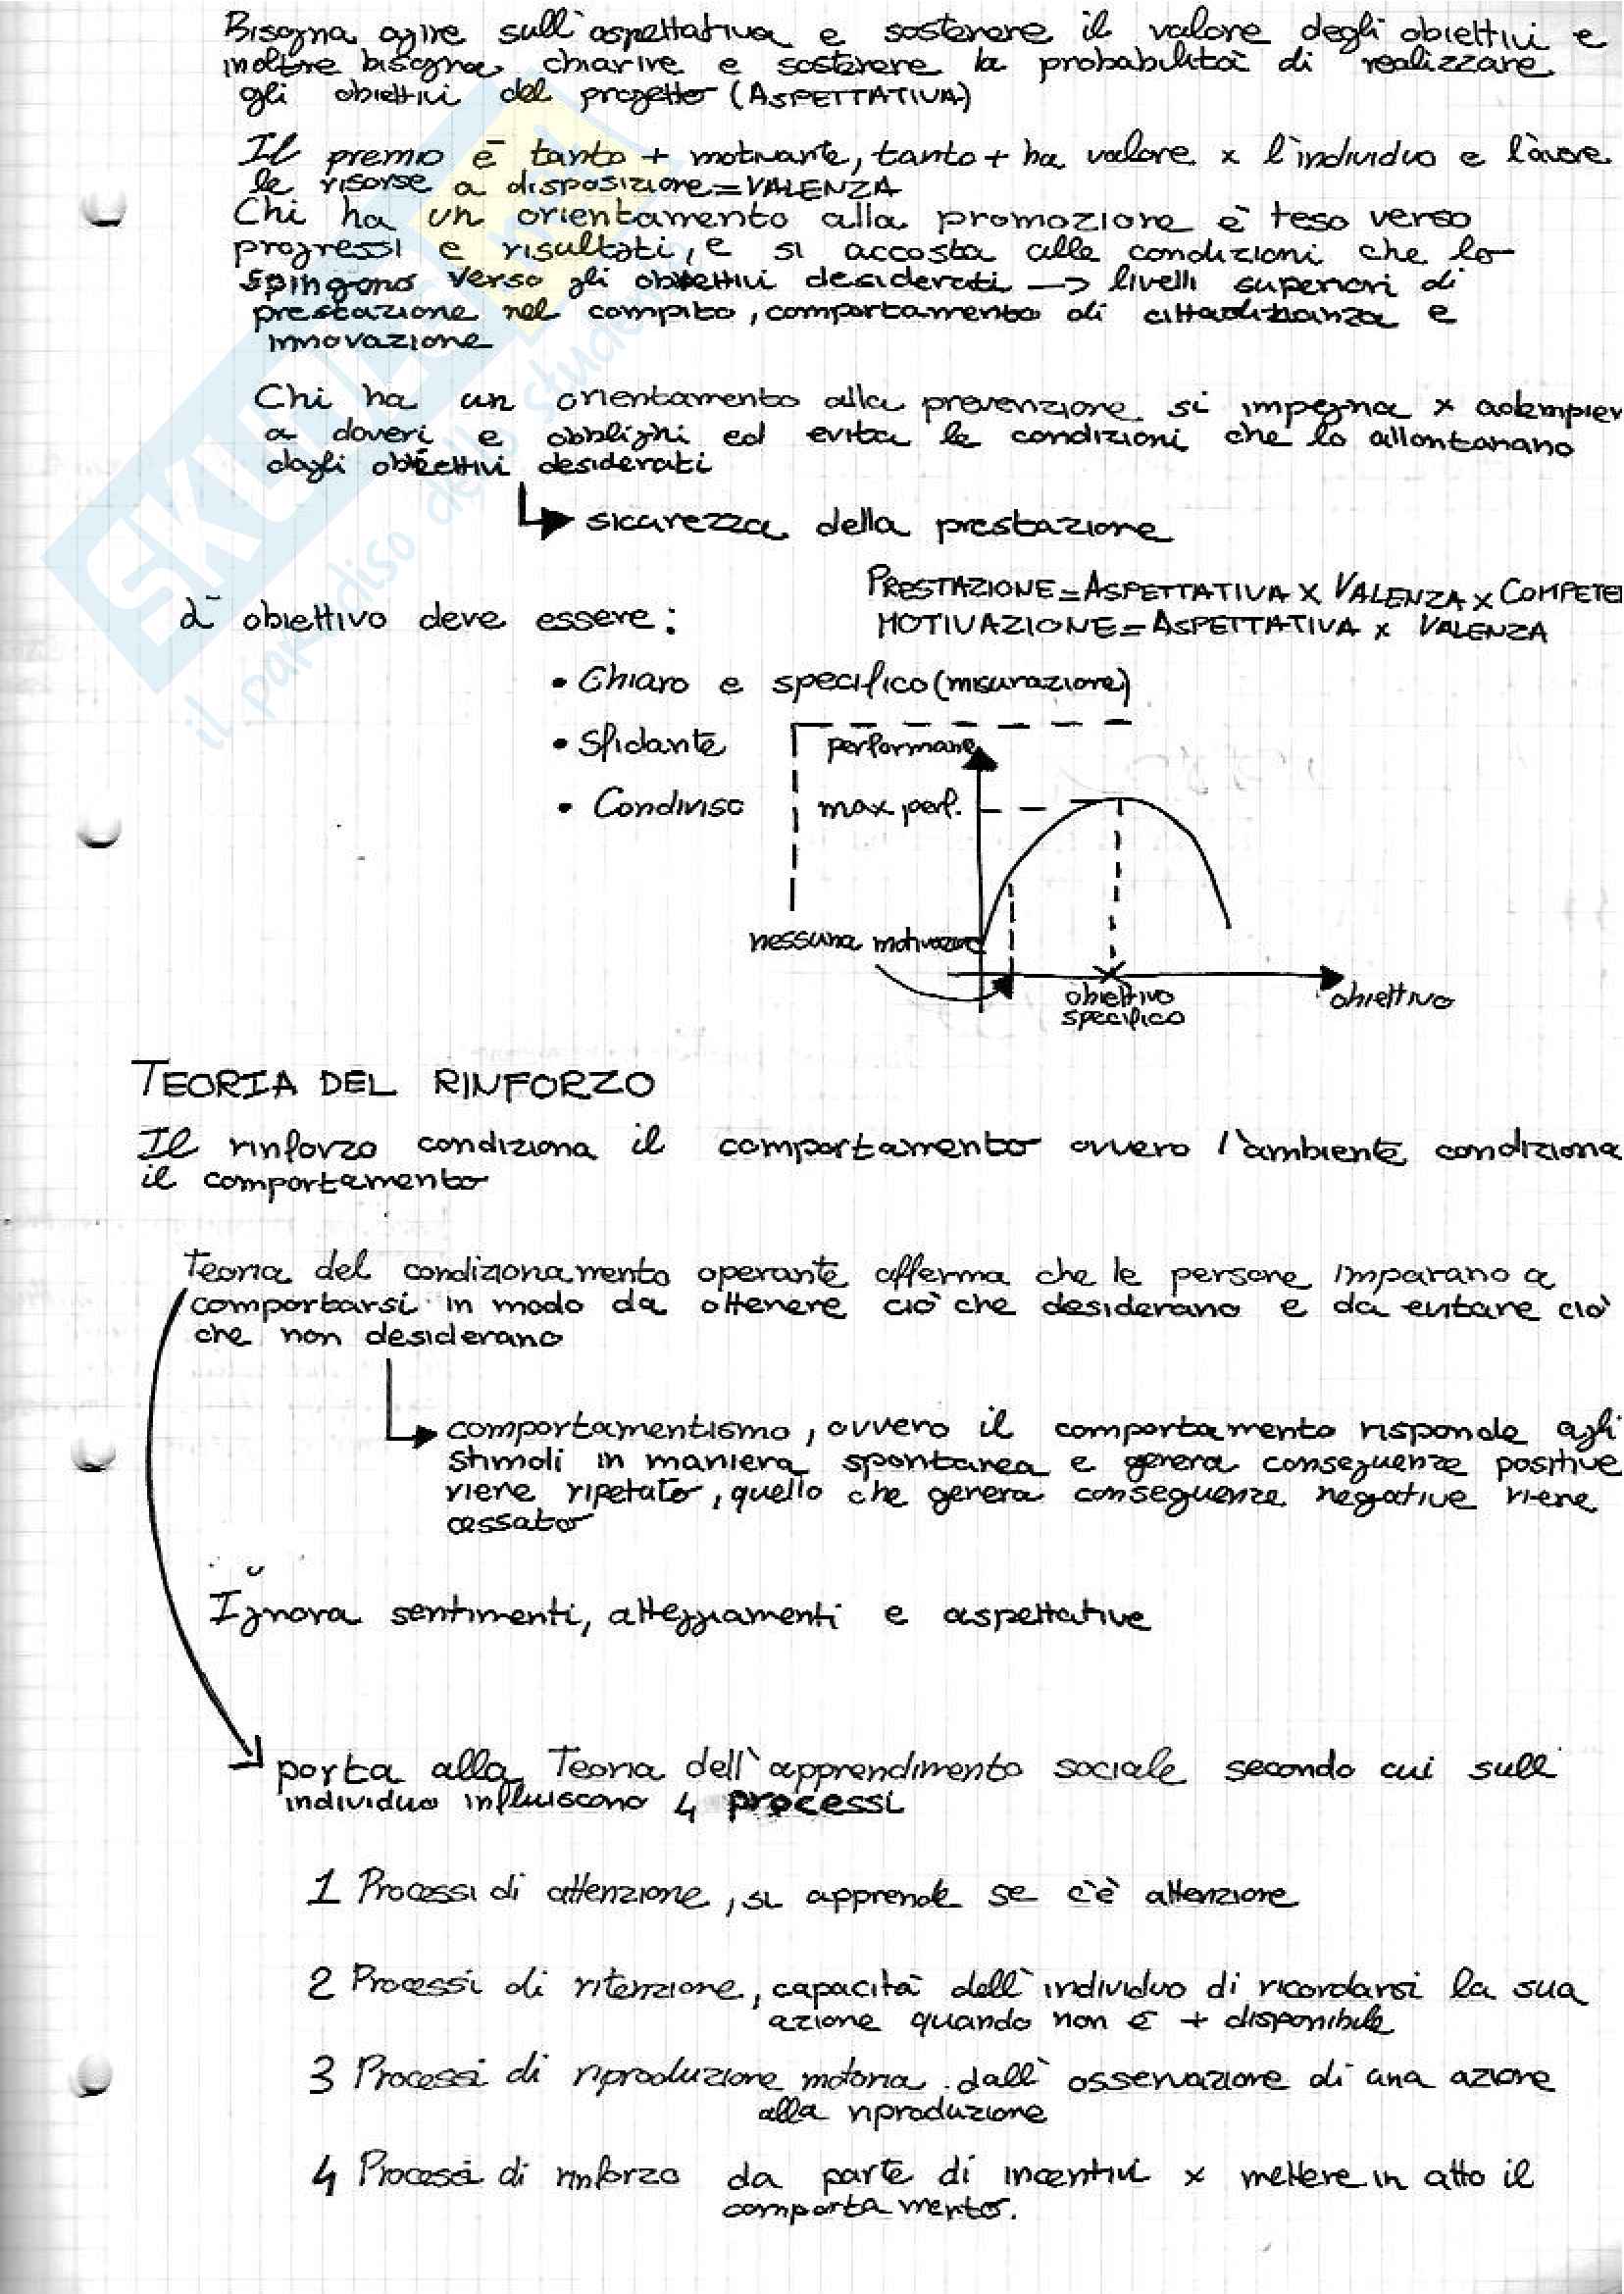 Bisogna agire sull'aspettativa e sostenere il valore degli obiettivi e
inoltre bisogna chiarire e sostenere la probabilità di realizzare
gli obiettivi del progetto (ASPETTATIVA)
Il premio è tanto + motivante, tanto + ha valore x l'individuo e l'avere
le risorse a disposizione = VALENZA
Chi ha un orientamento alla promozione è teso verso
progressi e risultati, e si accosta alle condizioni che lo
spingono verso gli obiettivi desiderati → livelli superiori di
prestazione nel compito, comportamento di cittadinanza e
innovazione
Chi ha un orientamento alla prevenzione si impegna x adempier
a doveri e obblighi ed evita le condizioni che lo allontanano
dagli obiettivi desiderati
sicurezza della prestazione
PRESTAZIONE = ASPETTATIVA X VALENZA X COMPETE
L'obiettivo deve essere:
MOTIVAZIONE = ASPETTATIVA X VALENZA
• Chiaro e specifico (misurazione)
• Sfidante
performance
• Condiviso
max perf.
nessuna motivazione
obiettivo
specifico
obiettivo
TEORIA DEL RINFORZO
Il rinforzo condiziona il comportamento ovvero l'ambiente condiziona
il comportamento
Teoria del condizionamento operante afferma che le persone imparano a
comportarsi in modo da ottenere ciò che desiderano e da evitare ciò
che non desiderano
comportamentismo, ovvero il comportamento risponde agli
stimoli in maniera spontanea e genera conseguenze positive
viene ripetuto, quello che genera conseguenze negative viene
cessato
Ignora sentimenti, atteggiamenti e aspettative
porta alla Teoria dell'apprendimento sociale secondo cui sull'
individuo influiscono 4 processi
1 Processi di attenzione, si apprende se c'è attenzione
2 Processi di ritenzione, capacità dell'individuo di ricordarsi la sua
azione quando non è + disponibile
3 Processi di riproduzione motoria. dall'osservazione di una azione
alla riproduzione
4 Processi di rinforzo da parte di incentivi x mettere in atto il
comportamento.
SKUOLA.NET
il paradiso dello studente